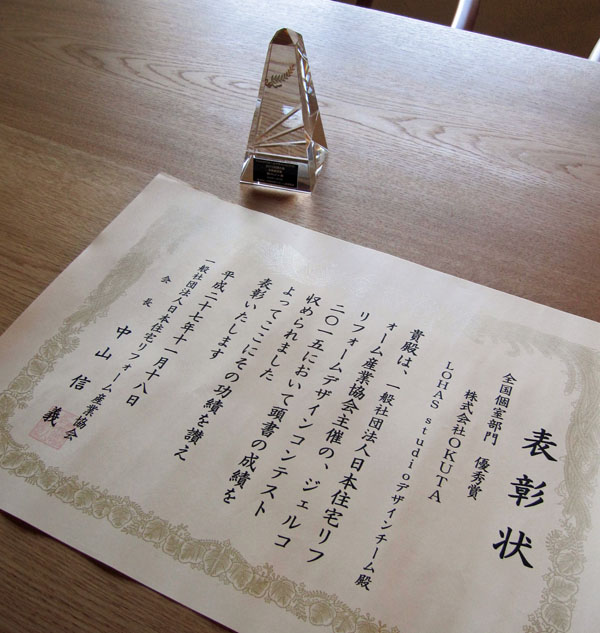 表彰状
全国個室部門 優秀賞
株式会社OKUTA
LOHAS studioデザインチーム殿
貴殿は、一般社団法人日本住宅リフ
ォーム産業協会主催の、ジェルコ
リフォームデザインコンテスト
二〇一五において頭書の成績を
収められました
よってここにその功績を讃え
表彰いたします
平成二十七年十一月十八日
一般社団法人日本住宅リフォーム産業協会
会長 中山信義